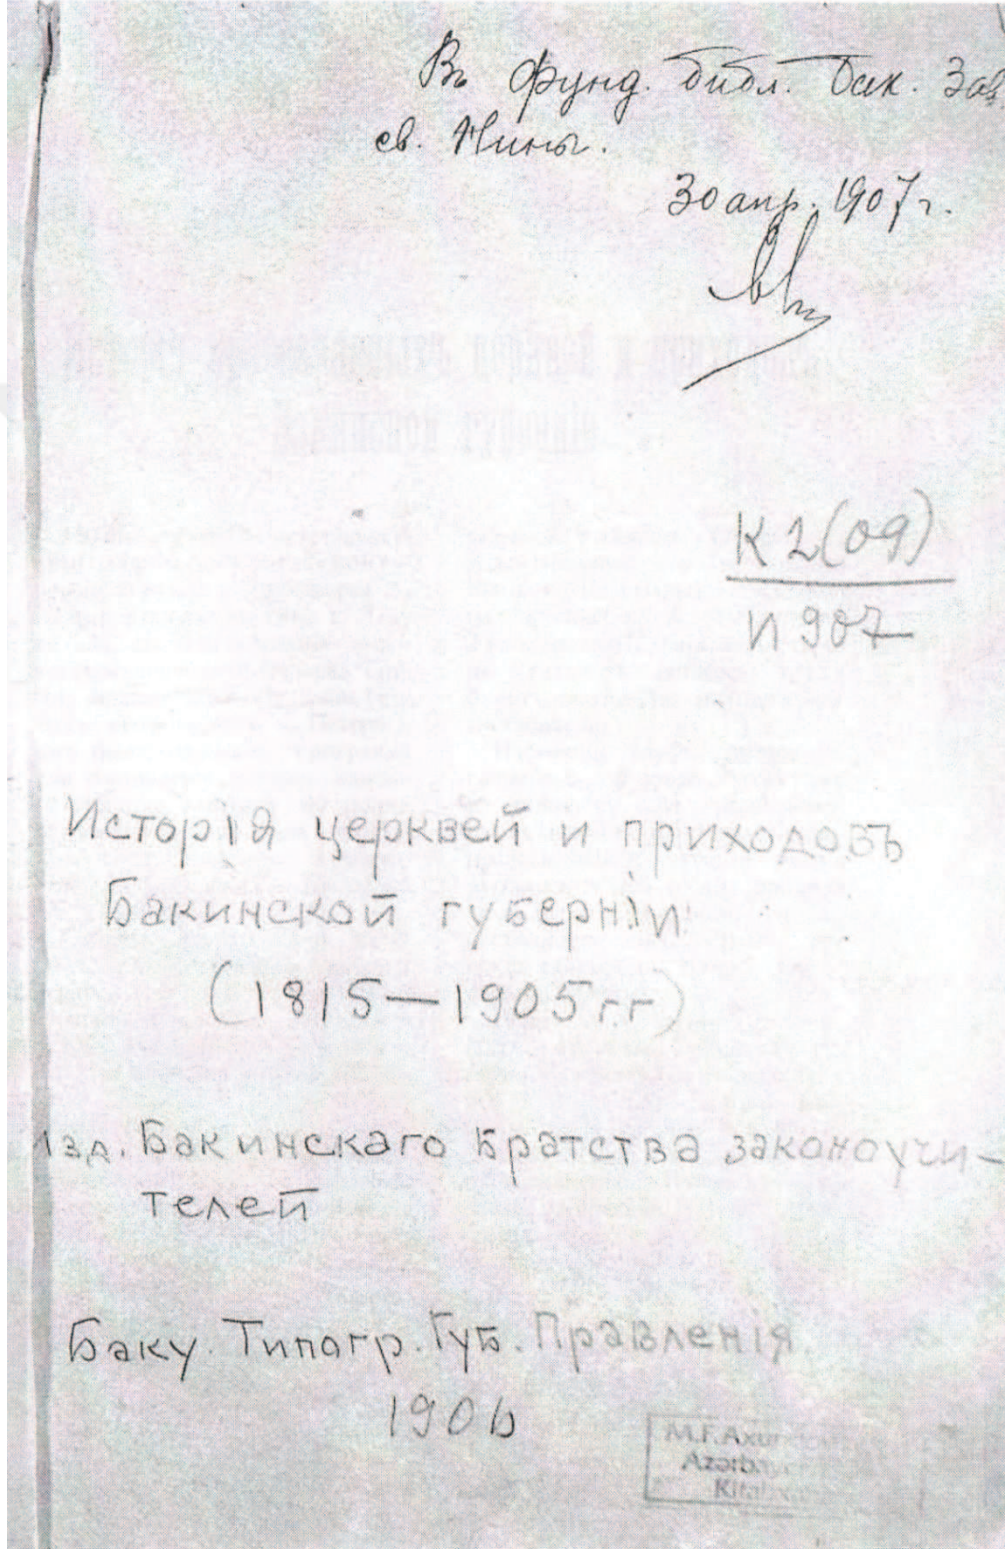 Въ фунд. библ. Бак. Зав
св. Нины.
30 апр. 1907 г.
К 2(09)
И 907
Исторія церквей и приходовъ
Бакинской губерніи
(1815—1905 г.г)
Изд. Бакинскаго братства законоучи-
телей
Баку. Типогр. Губ. Правленія.
1906
M.F.Axundov
Azərbay
Kitabxa